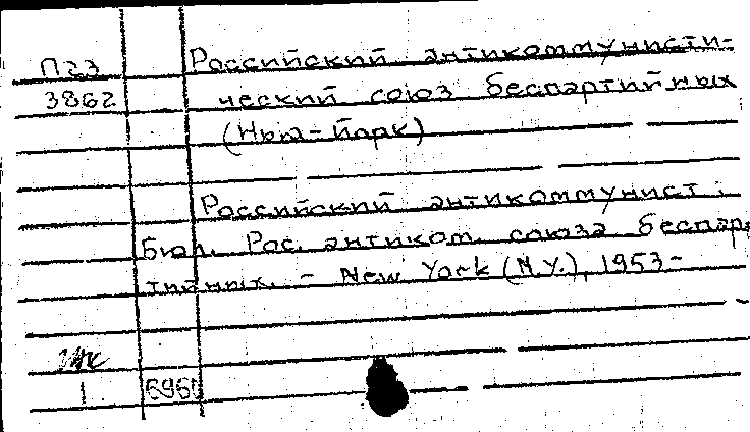 П23 Российский антикоммунисти-
3862 ческий союз беспартийных
(Нью-Йорк)
Российский антикоммунист:
Бюл. Рос. антиком. союза беспар-
тийных. - New York (N.Y.), 1953-
1